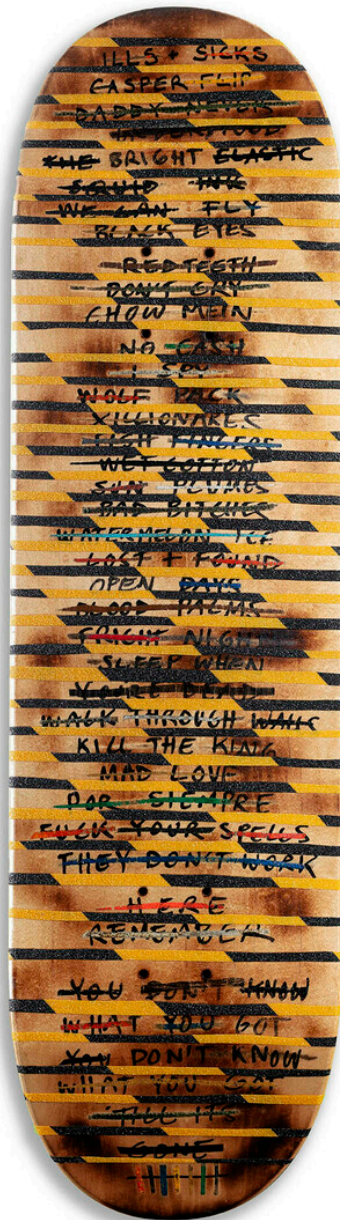 ILLS + SICKS
CASPER FLIP
DADDY NEVER
UNDERSTOOD
THE BRIGHT ELASTIC
SQUID INK
WE CAN FLY
BLACK EYES
RED TEETH
DON'T CRY
CHOW MEIN
NO CASH
WOLF PACK
XILLIONARES
LIGHT FINGERS
WET COTTON
SUN PLUMES
BAD BITCHES
WATERMELON ICE
LOST + FOUND
OPEN DAYS
BLOOD PALMS
FRIGHT NIGHT
SLEEP WHEN
YOU'RE DEAD
WALK THROUGH WALLS
KILL THE KING
MAD LOVE
POR SIEMPRE
FUCK YOUR SPELLS
THEY DON'T WORK
HERE
REMEMBER
YOU DON'T KNOW
WHAT YOU GOT
YOU DON'T KNOW
WHAT YOU GOT
TILL ITS
GONE